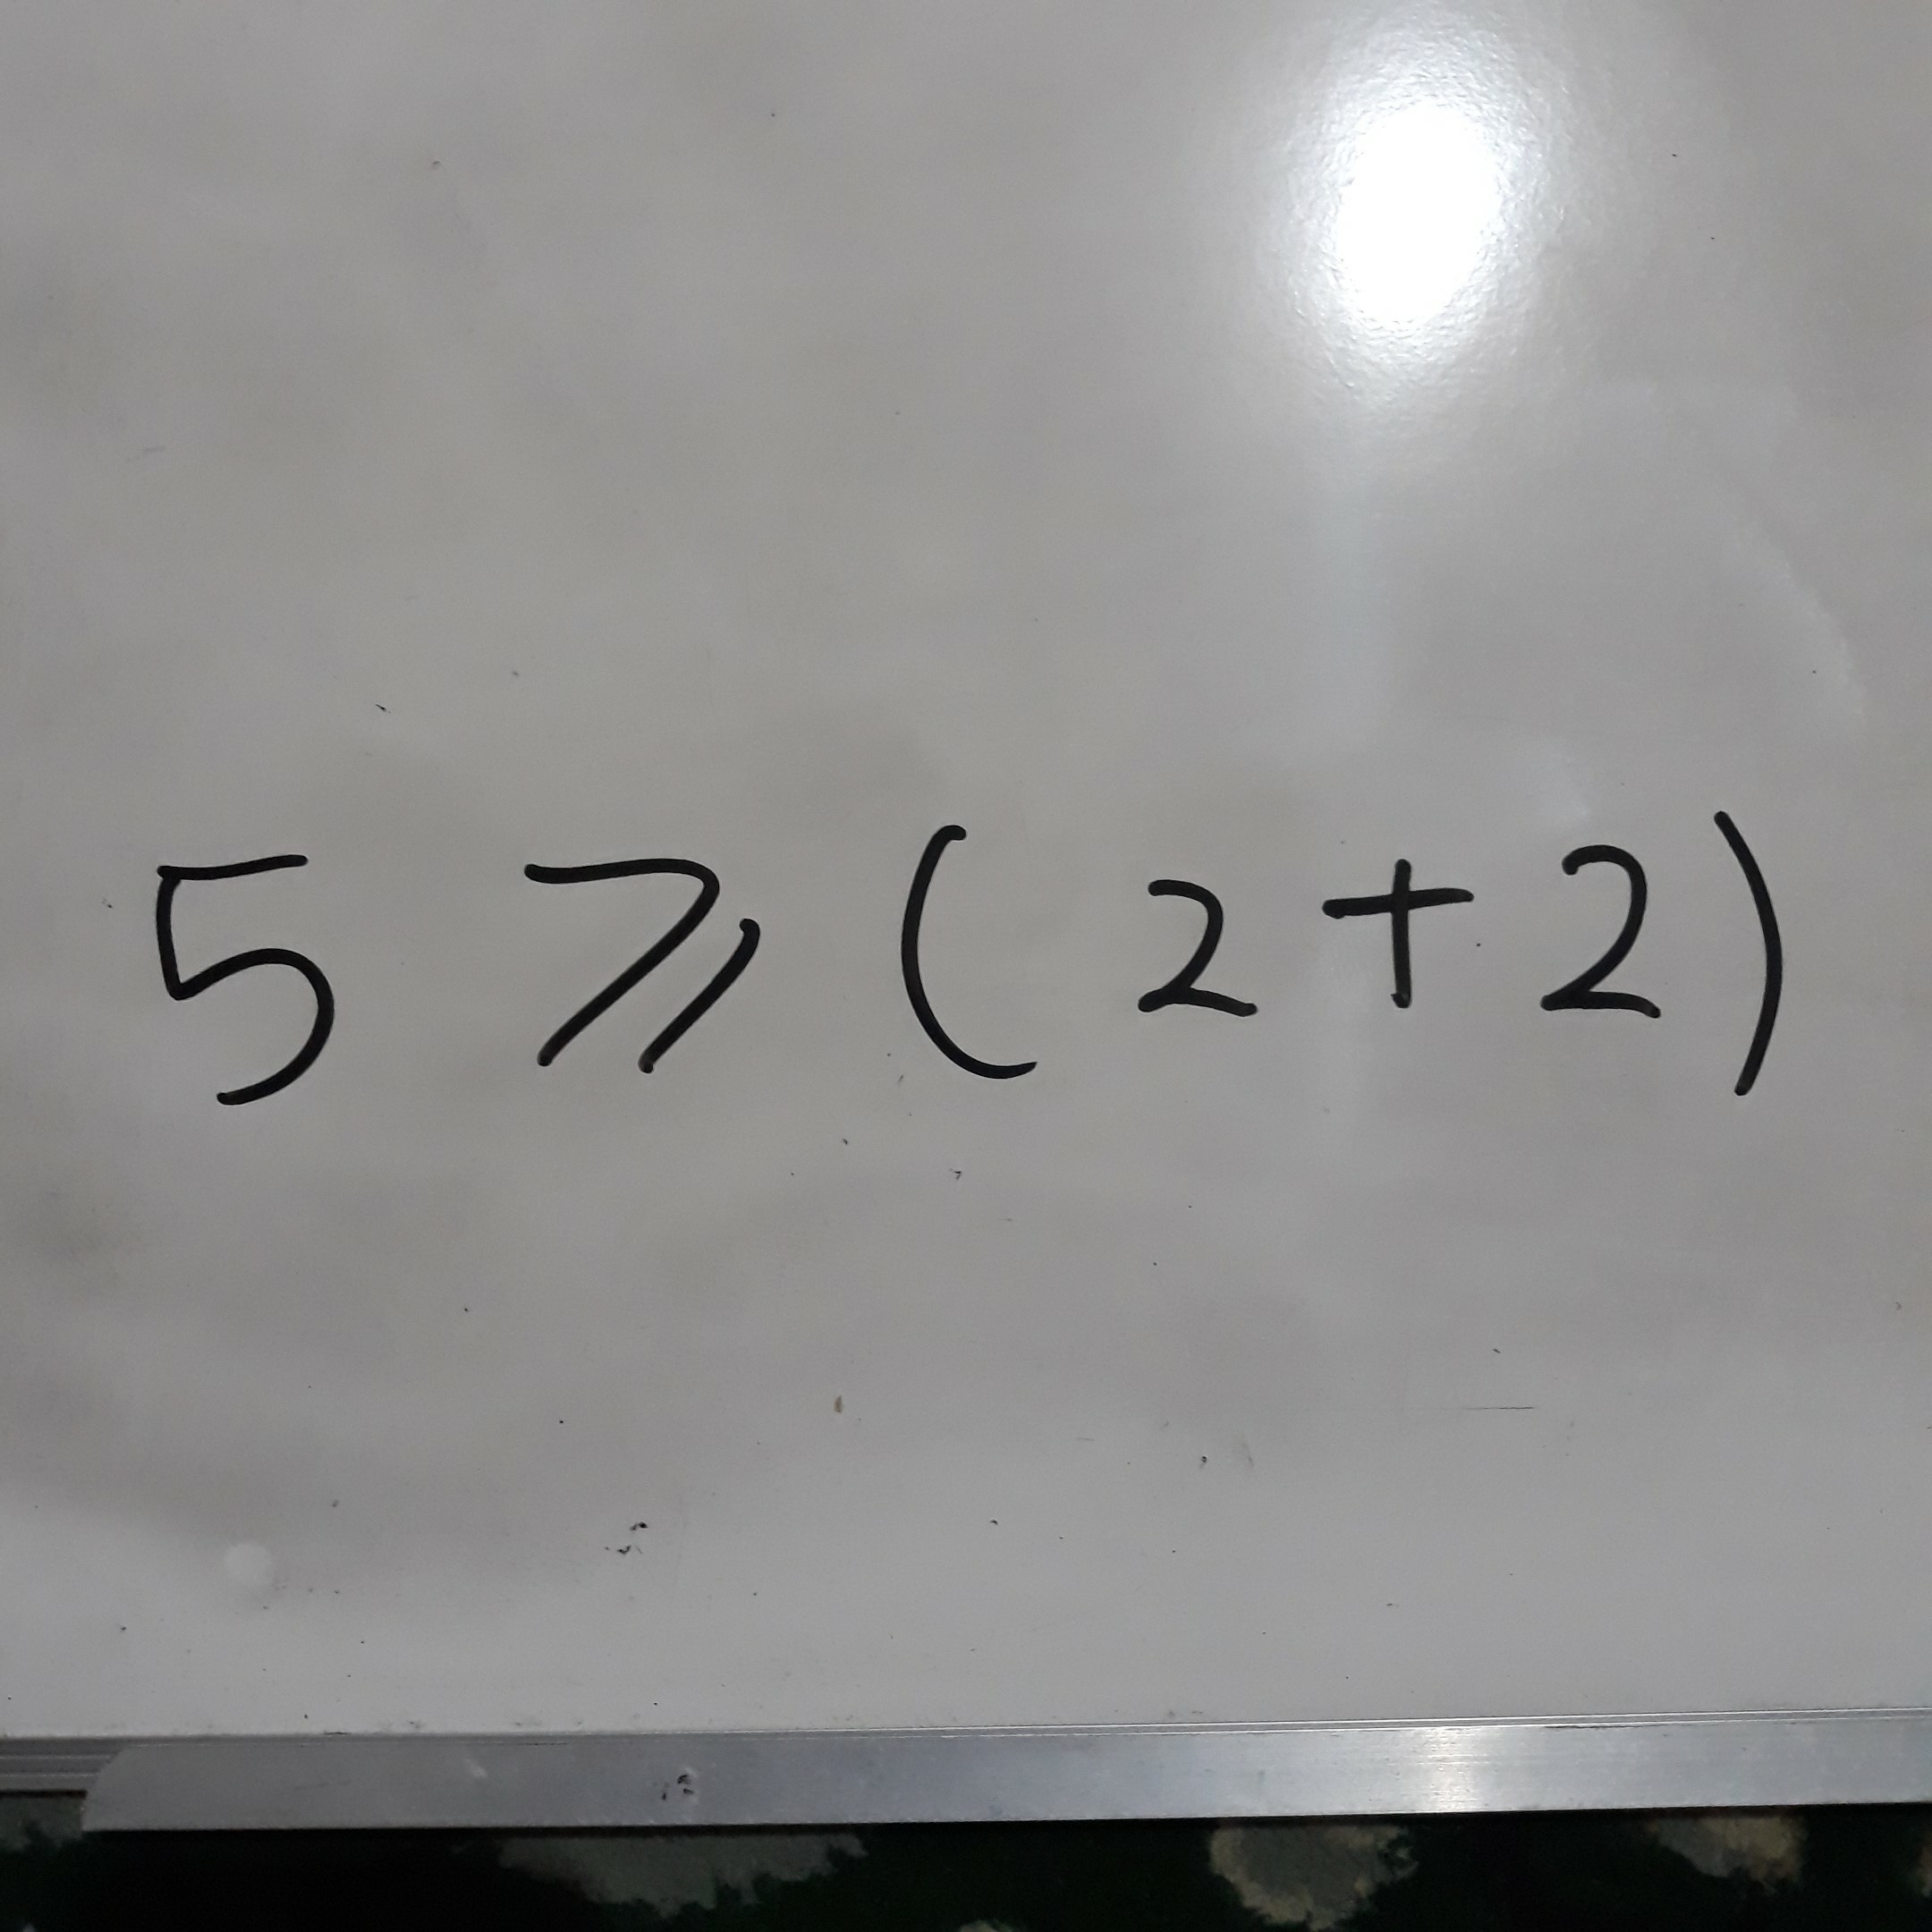 5 ⩾ ( 2 + 2 )